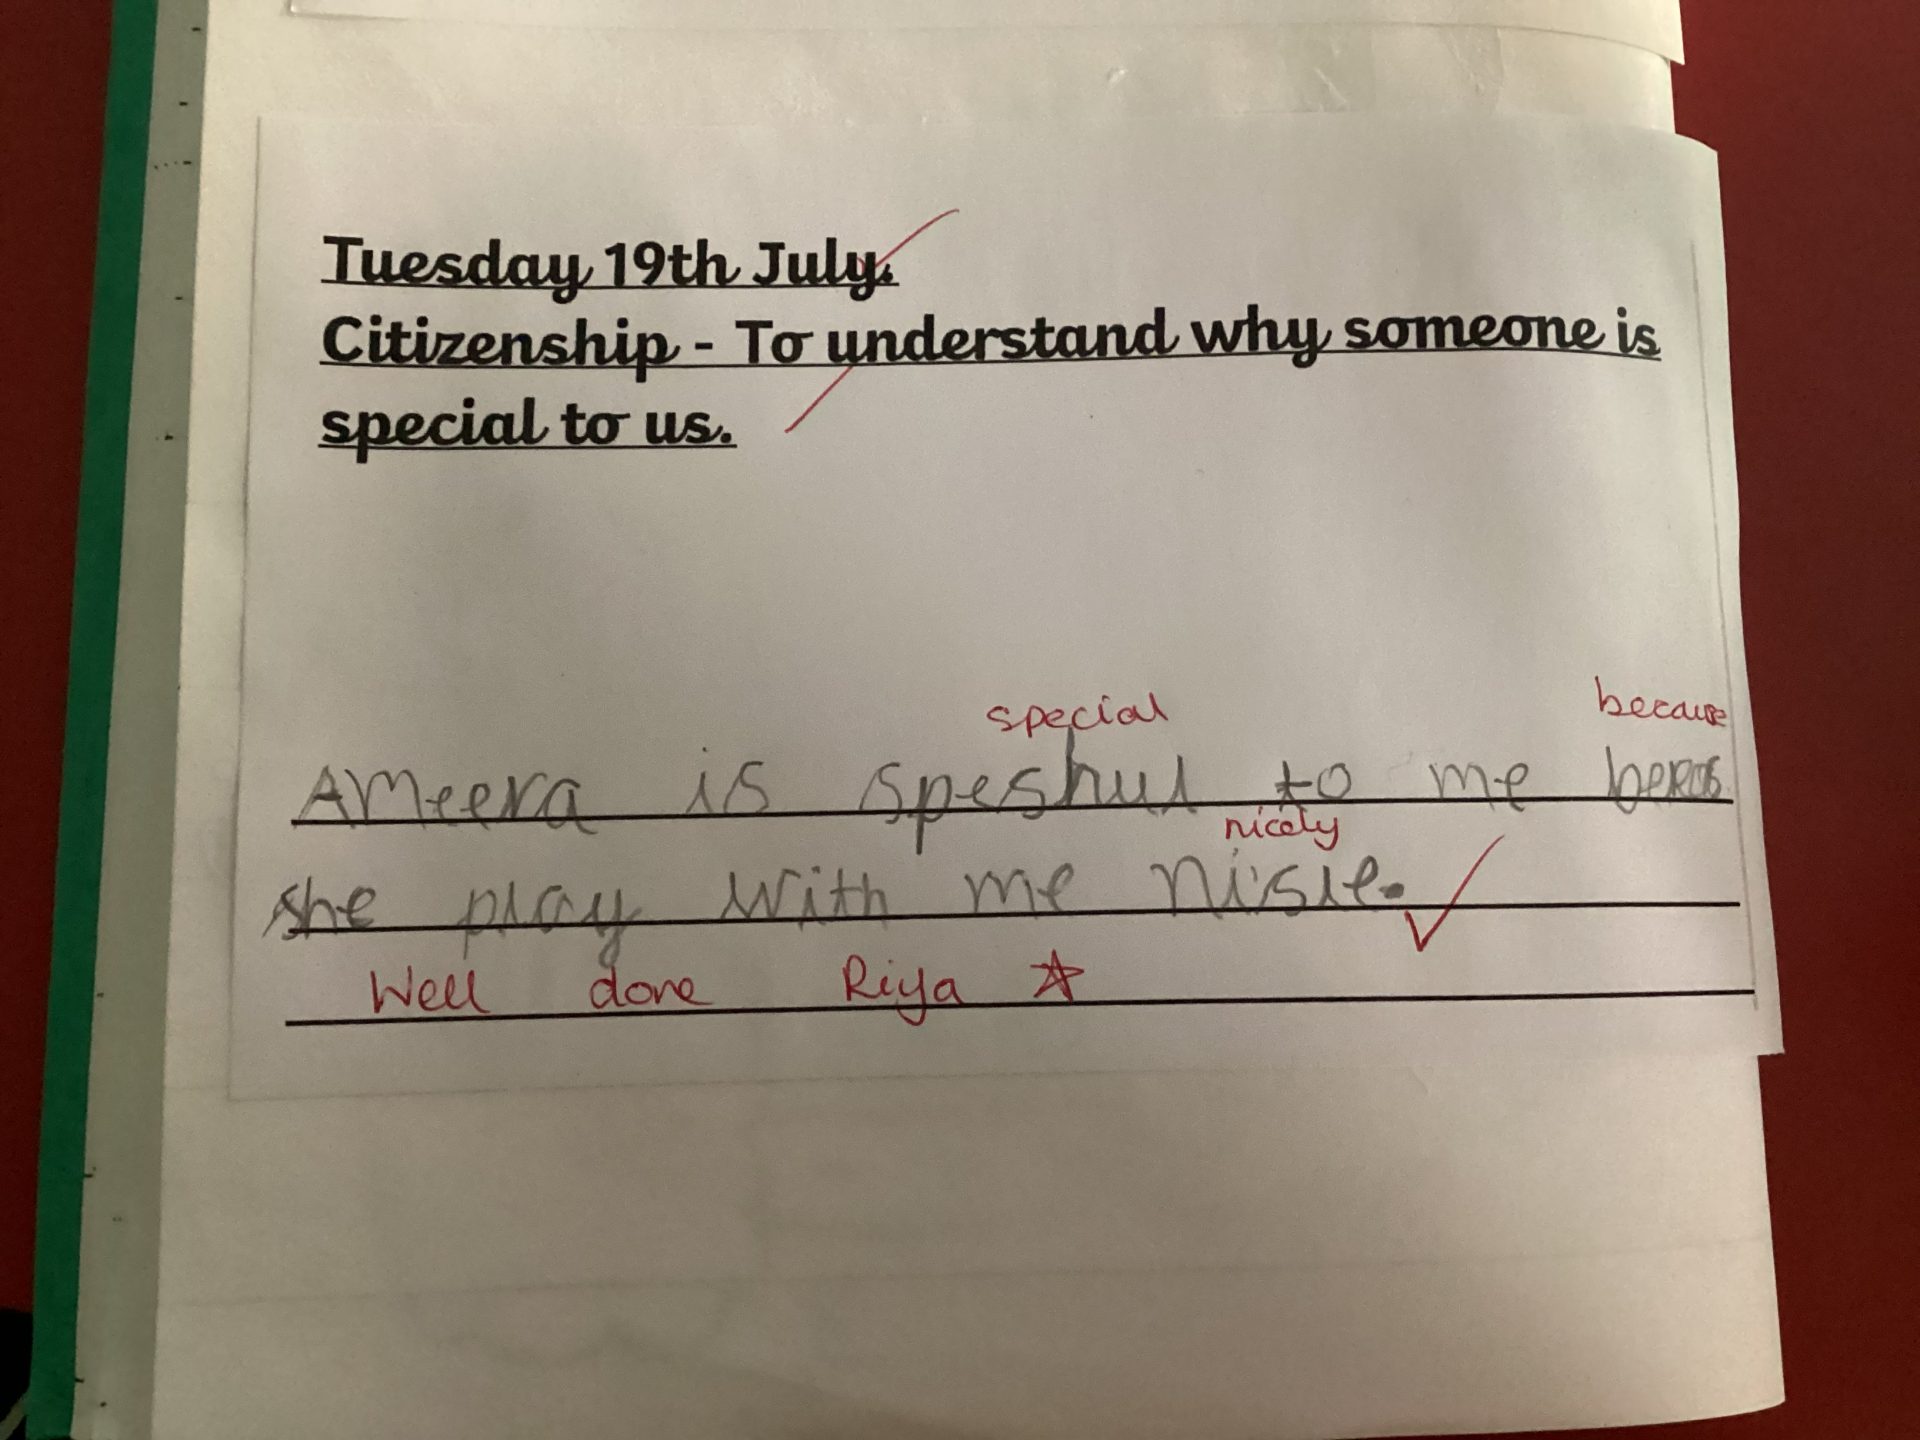 Tuesday 19th July.
Citizenship - To understand why someone is
special to us.
special because
Ameera is speshul to me
nicely
she play with me nisle.
Well done Riya